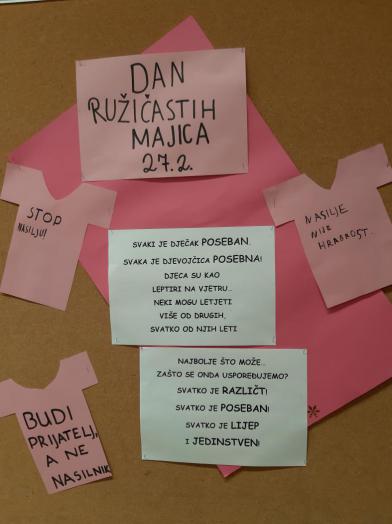 DAN
RUŽIČASTIH
MAJICA
27.2.
STOP
NASILJU!
NASILJE
NIJE
HRABROST.
SVAKI JE DJEČAK POSEBAN.
SVAKA JE DJEVOJČICA POSEBNA!
DJECA SU KAO
LEPTIRI NA VJETRU...
NEKI MOGU LETJETI
VIŠE OD DRUGIH,
SVATKO OD NJIH LETI
NAJBOLJE ŠTO MOŽE...
ZAŠTO SE ONDA USPOREĐUJEMO?
SVATKO JE RAZLIČT!
SVATKO JE POSEBAN!
SVATKO JE LIJEP
I JEDINSTVEN!
BUDI
PRIJATELJ,
A NE
NASILNIK